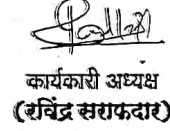 कार्यकारी अध्यक्ष
(रविंद्र सराफदार)